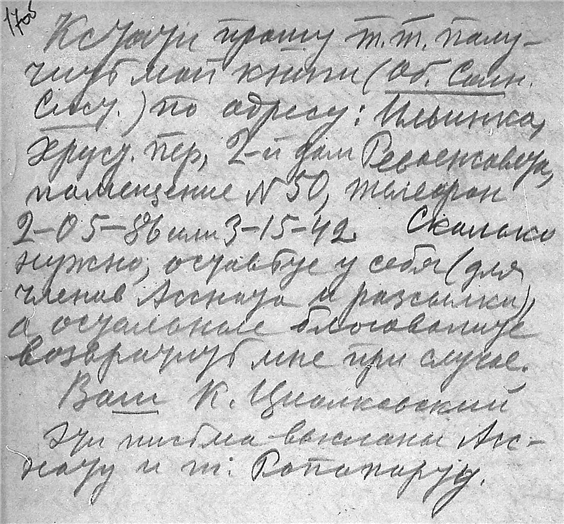 170б
Кстати прошу т.т. полу-
чить мои книги (Об. Солн.
Сист.) по адресу: Ильинка,
Хруст. пер, 2-й дом Реввоенсовета,
помещение N 50, телефон
2-05-86 или 3-15-42. Сколько
нужно, оставьте у себя (для
членов Асснато и рассылки),
а остальные благоволите
возвратить мне при случае.
Ваш К. Циолковский
Эти письма высланы Асс-
нату и т: Рапапорту.